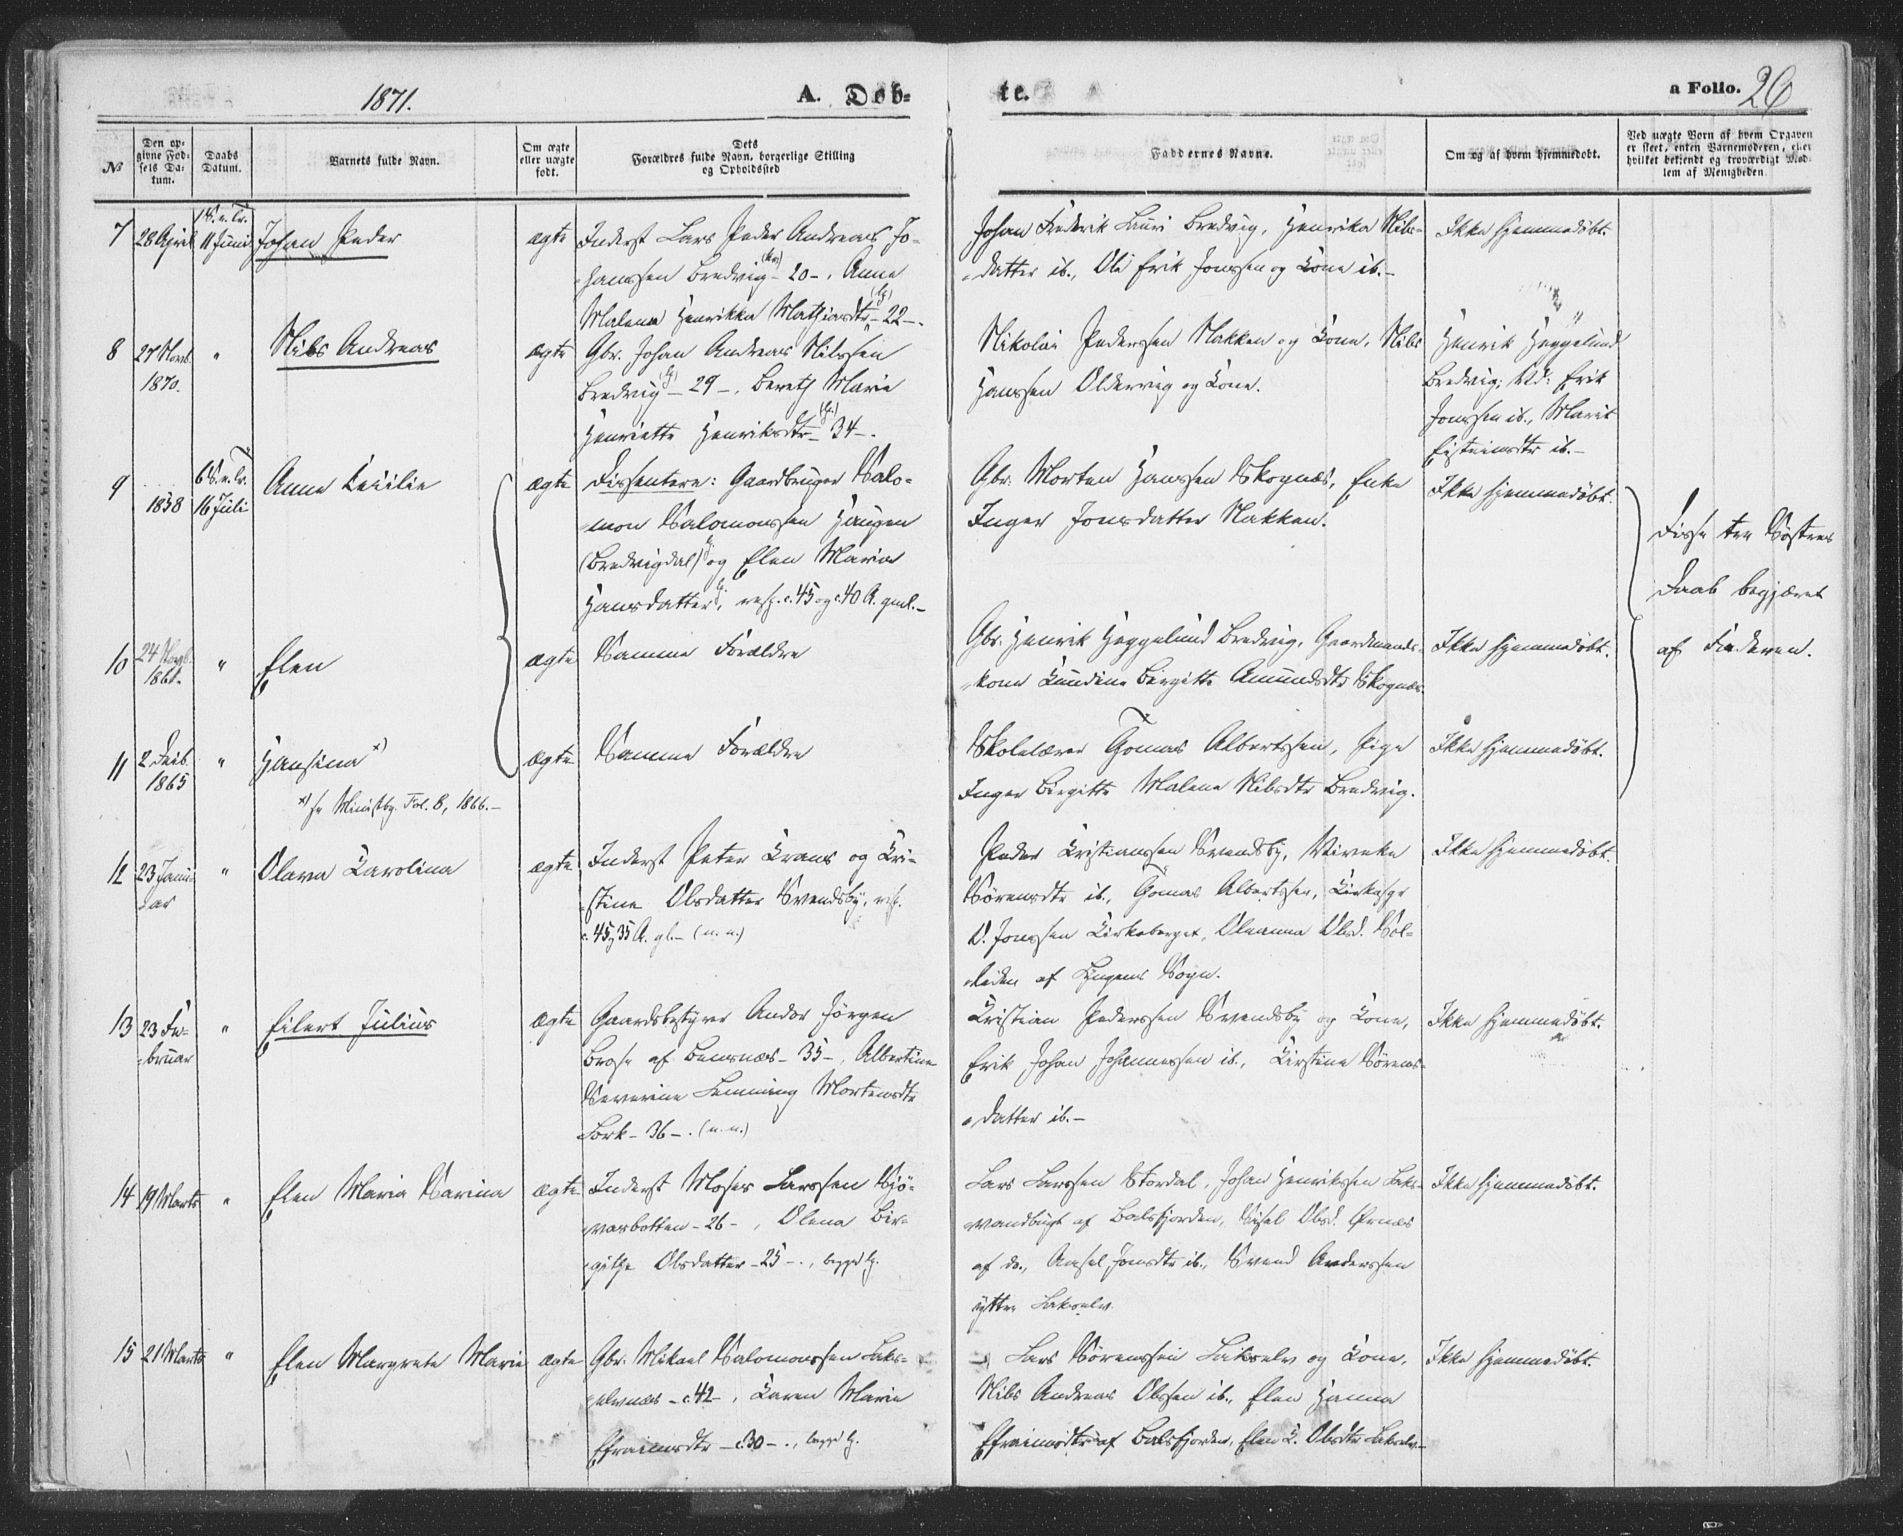 1871.
A. Døb-
te.
a Folio. 26
No
Den op-
givne Fød-
sels Da-
tum.
Daabs
Datum.
Barnets fulde Navn.
Om ægte
eller uægte
født.
Dets
Forældres fulde Navn, borgerlige Stilling
og Opholdssted
Faddernes Navne.
Om og af hvem hjemmedøbt.
Ved uægte Børn af hvem Opgaven
er skeet, enten Barnemoderen, eller
hvilket bekjendt og troværdigt Med-
lem af Menigheden.
7 28 April 1 S. e. Tr. 11 Juni Johan Peder ægte
Inderst Lars Peder Andreas Jo-
hanssen Bredvig - 20 -, Anne
Malena Henrikka Mathiasdtr - 22 -.
Johan Frederik Lauri Bredvig, Henrika Nils-
datter ib., Ole Erik Jonssen og Kone ib. -
Ikke hjemmedøbt.
8 27 Novb. 1870. " Nils Andreas ægte
Gbr. Johan Andreas Nilssen
Bredvig - 29 -, Bereth Marie
Henriette Henriksdtr - 34 -.
Nikolai Pederssen Nakken og Kone, Nils
Hanssen Oldervig og Kone.
Henrik Heggelund
Bredvig; Vd: Erik
Jonssen ib., Marit
Eisteinsdtr ib. -
9 1858 6 S. e. Tr. 16 Juli Anne Cecilie ægte
Dissentere: Gaardbruger Salo-
mon Salomonssen Haugen
(Bredvigdal) og Elen Maria
Hansdatter, resp. c. 45 og c. 40 A. gml. -
Gbr. Morten Hanssen Skognæs, Enke
Inger Jonsdatter Nakken.
Ikke hjemmedøbt.
Disse tre Søstres
Daab begjæret
af Faderen.
10 24 Novb. 1861. " Elen ægte
Samme Forældre
Gbr. Henrik Heggelund Bredvig, Gaardmands-
kone Kundine Birgitte Amundsdtr Skognæs.
Ikke hjemmedøbt.
11 2 Decb. 1865 " Hansina x) ægte
x) se Ministbg. Fol. 8, 1866. -
Samme Forældre
Skolelærer Tomas Albertssen, Pige
Inger Birgitte Malene Nilsdtr Bredvig.
Ikke hjemmedøbt.
12 23 Janu-
ar " Olava Karolina ægte
Inderst Peter Krans og Kri-
stine Olsdatter Svendsby, resp.
c. 45, 35 A. gl. - (n. n.)
Peder Kristianssen Svendsby, Viveke
Sørensdtr ib., Tomas Albertssen, Kirkesgr
O. Jonssen Kirkeberget, Oleanna Olsd. Sol-
leiden af Lyngens Sogn.
Ikke hjemmedøbt.
13 23 Fe-
bruar " Eilert Julius ægte
Gaardsbestyrer Andor Jørgen
Brose af Bensnæs - 35 -, Albertine
Severine Lemming Mortensdtr
Bork - 36 -. (n. n.)
Kristian Pederssen Svendsby og Kone,
Erik Johan Johannessen ib., Kirstine Sørens-
datter ib. -
Ikke hjemmedøbt.
14 19 Marts " Elen Maria Sarina ægte
Inderst Moses Larssen Sjø-
varbotten - 26 -, Olena Bir-
githe Olsdatter - 25 -., begge l.
Lars Larssen Stordal, Johan Henrikssen Laks-
vandbugt af Balsfjorden, Sisel Olsd. Ørnæs
af do., Axsel Jonsdtr ib., Svend Anderssen
ytter Lakselv.
Ikke hjemmedøbt.
15 21 Marts " Elen Margrete Marie ægte
Gbr. Mikael Salomonssen Laks-
elvnæs - c. 42 -, Karen Marie
Efraimsdtr - c. 30 -., begge l.
Lars Sørenssen Lakselv og Kone,
Nils Andreas Olssen ib., Elen Hanna
Efraimsdtr af Balsfjorden, Elen K. Olsdtr Lakselv. -
Ikke hjemmedøbt.